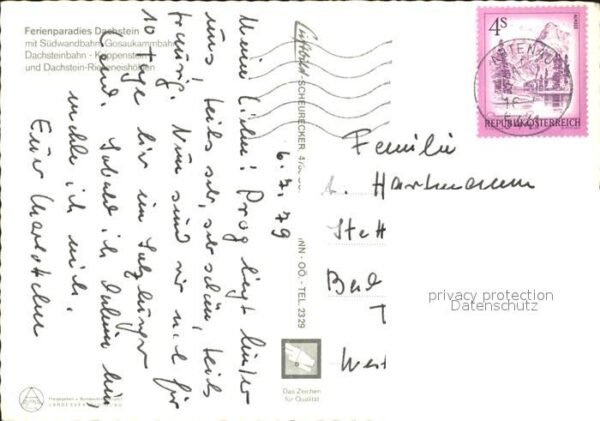 Ferienparadies Dachstein
mit Südwandbahn, Gosaukammbahn,
Dachsteinbahn - Krippenstein
und Dachstein-Rieseneishöhlen
6.7.79
Meine Lieben! Prag liegt hinter
uns, teils sehr, sehr schön, teils
traurig. Nun sind wir noch für
10 Tage hier im Salzburger
Land. Sobald ich daheim bin,
melde ich mich.
Eure
Luftbild-SCHEURECKER, 4780
INN - OÖ. - TEL. 2329
Das Zeichen
für Qualität
4S
REPUBLIK ÖSTERREICH
Familie
Hartmann
Stett
Bad
T
West
privacy protection
Datenschutz